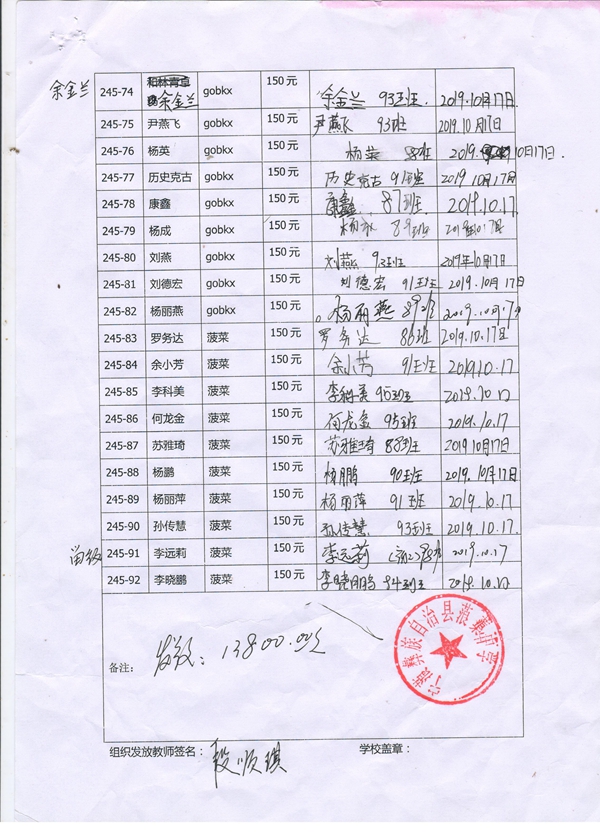 余金兰 245-74 余金兰 gobkx 150元 余金兰 93班. 2019.10月17日
245-75 尹燕飞 gobkx 150元 尹燕飞 93班 2019.10月17日
245-76 杨英 gobkx 150元 杨英 88班 2019. 10月17日.
245-77 历史克古 gobkx 150元 历史克古 91班 2019 10月17日
245-78 康鑫 gobkx 150元 康鑫 87班 2019.10.17
245-79 杨成 gobkx 150元 杨成 89班
245-80 刘燕 gobkx 150元 刘燕 93班 2019年10月17日
245-81 刘德宏 gobkx 150元 刘德宏 91班 2019.10月17日
245-82 杨丽燕 gobkx 150元 杨丽燕 89班
245-83 罗务达 菠菜 150元 罗务达 86班 2019.10.17日
245-84 余小芳 菠菜 150元 余小芳 91班 2019.10.17
245-85 李科美 菠菜 150元 李科美 95班
245-86 何龙金 菠菜 150元 何龙金 95班 2019.10.17
245-87 苏雅琦 菠菜 150元 苏雅琦 88班 2019 10月17日
245-88 杨鹏 菠菜 150元 杨鹏 90班 2019.10月17日
245-89 杨丽萍 菠菜 150元 杨丽萍 91班 2019.10.17
245-90 孙传慧 菠菜 150元 孙传慧 93班 2019.10.17.
留级 245-91 李远莉 菠菜 150元 李远莉 2019.10.17
245-92 李晓鹏 菠菜 150元 李晓鹏 84班 2019.10.17
备注: 发放: 13800.00元
宁蒗彝族自治县菠菜中学
组织发放教师签名: 段顺琪 学校盖章: